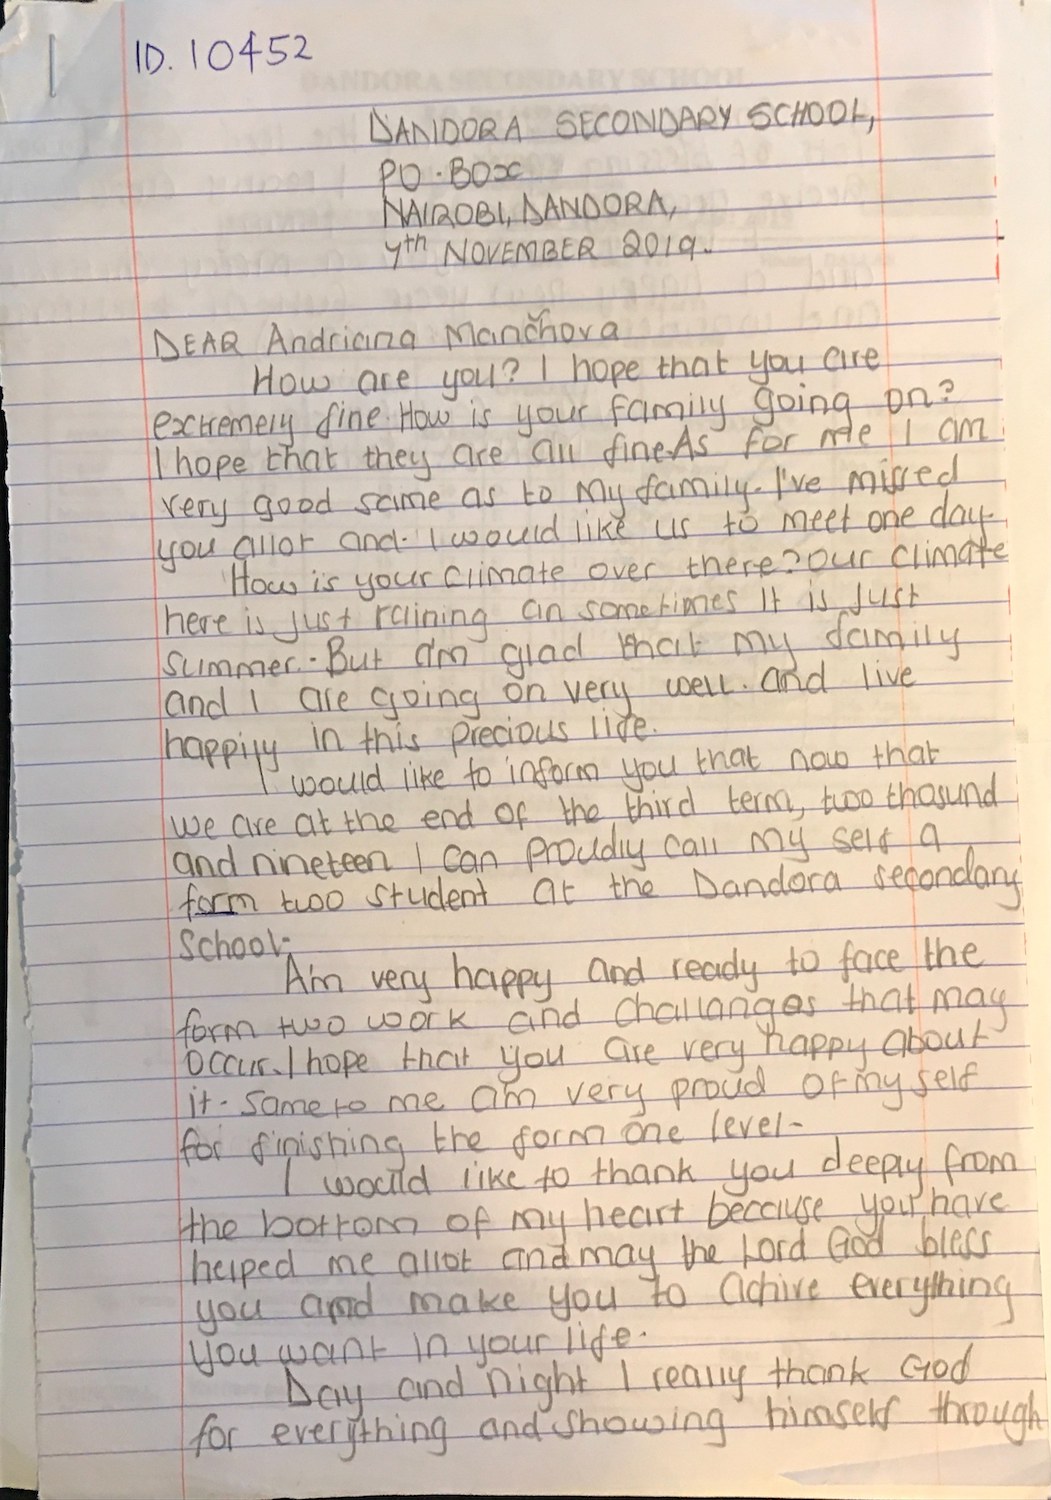 ID. 10452
DANDORA SECONDARY SCHOOL,
PO. BOX
NAIROBI, DANDORA,
4th NOVEMBER 2019.
DEAR Andriana Mančhova
How are you? I hope that you are
extremely fine. How is your family going on?
I hope that they are all fine. As for me I am
very good same as to my family. I've missed
you allot and. I would like us to meet one day.
How is your climate over there? Our climate
here is just raining an sometimes it is just
summer. But am glad that my family
and I are going on very well. and live
happily in this precious life.
I would like to inform you that now that
we are at the end of the third term, two thosund
and nineteen I can proudly call my self a
form two student at the Dandora secondary
School.
Am very happy and ready to face the
form two work and challanges that may
occur. I hope that you are very happy about
it. Same to me am very proud of my self
for finishing the form one level.
I would like to thank you deeply from
the bottom of my heart because you have
helped me allot and may the Lord God bless
you and make you to achive everything
you want in your life.
Day and night I really thank God
for everything and showing himself through